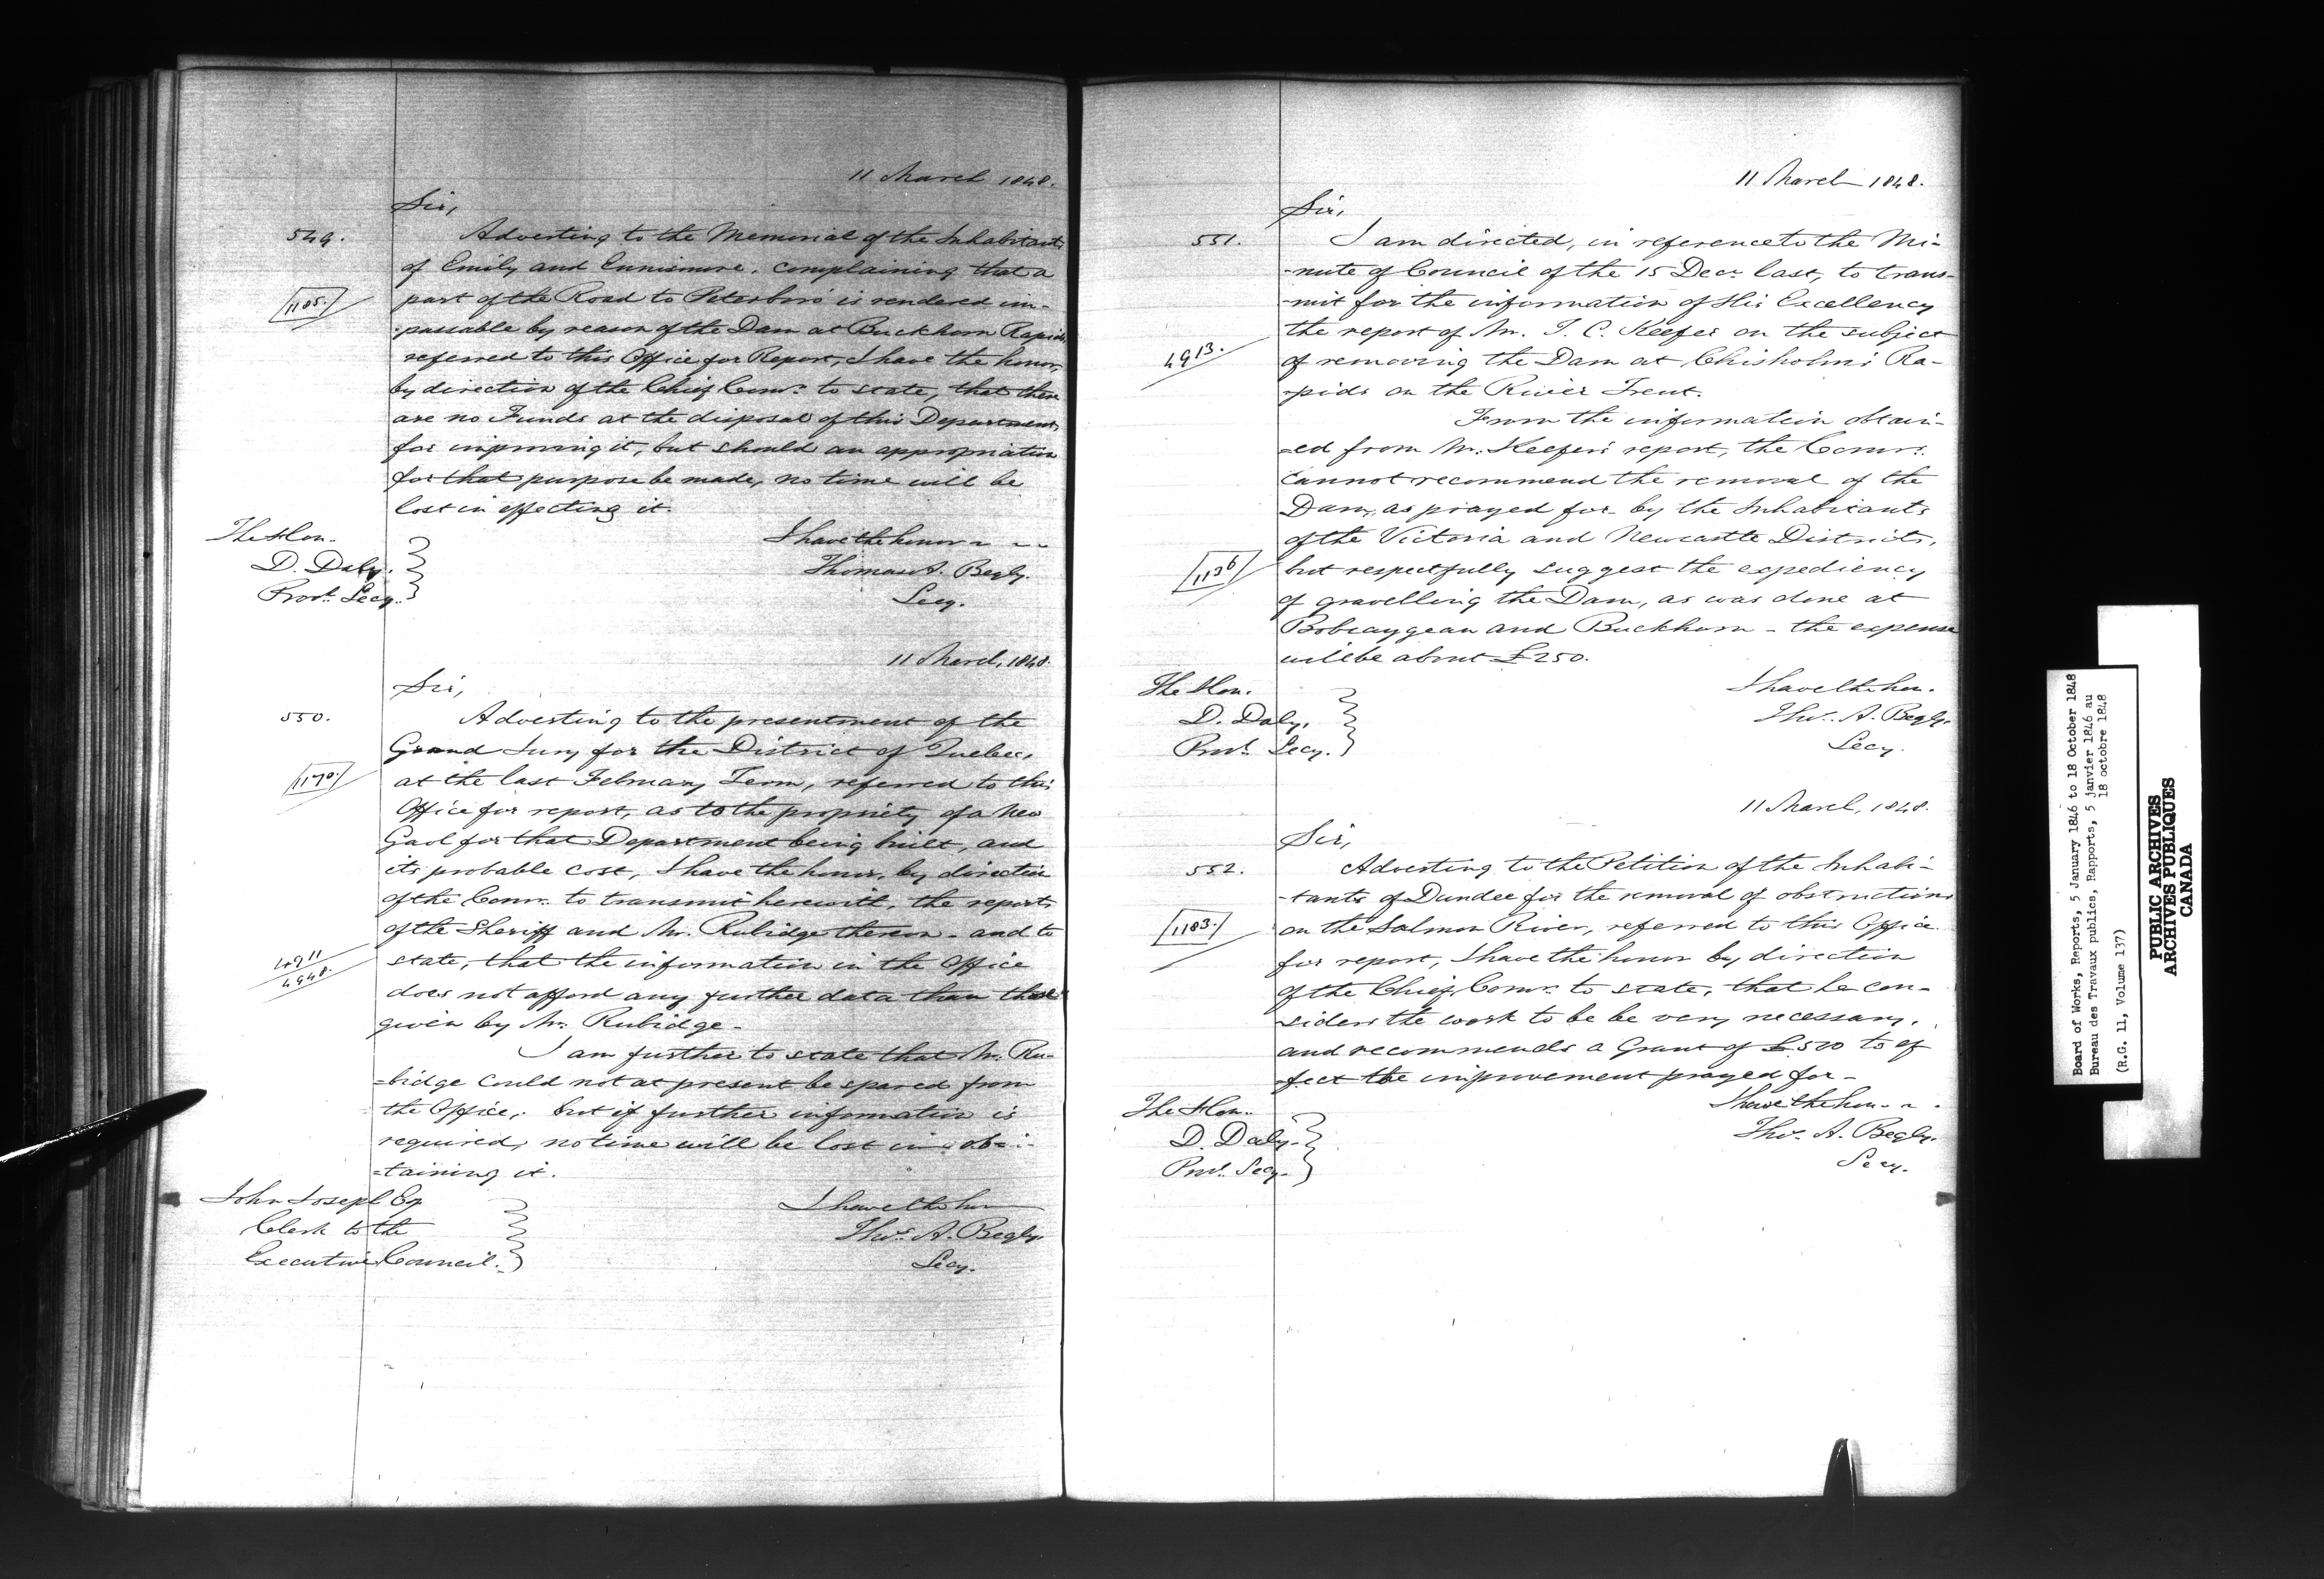 11 March 1848.
Sir,
549.
Adverting to the Memorial of the Inhabitants
of Emily and Ennismore, complaining that a
1185.
part of the Road to Peterboro' is rendered im-
-passable by reason of the Dam at Buckhorn Rapids,
referred to this Office for Report, I have the honor,
by direction of the Chief Comr. to state, that there
are no Funds at the disposal of this Department
for improving it, but should an appropriation
for that purpose be made, no time will be
lost in effecting it.
The Hon.
D. Daly.
Provl. Secy.
I have the honor
Thomas A. Begly.
Secy.
11 March, 1848.
Sir,
550.
Adverting to the presentment of the
Grand Jury for the District of Quebec,
1170.
at the last February Term, referred to this
Office for report, as to the propriety of a New
Gaol for that Department being built, and
its probable cost, I have the honor, by direction
of the Comr. to transmit herewith, the reports
of the Sheriff and Mr. Rubidge thereon - and to
4911
4948.
state, that the information in the Office
does not afford any further data than those
given by Mr. Rubidge -
I am further to state that Mr. Ru-
-bidge could not at present be spared from
the Office, but if further information is
required, no time will be lost in ob-
-taining it.
John Joseph Esq
Clerk to the
Executive Council.
I have the hon
Thos. A. Begly.
Secy.
11 March 1848.
Sir,
551.
I am directed, in reference to the Mi-
-nute of Council of the 15 Decr. last, to trans-
-mit for the information of His Excellency
the report of Mr. T. C. Keefer on the subject
4913.
of removing the Dam at Chisholm's Ra-
-pids on the River Trent.
From the information obtain-
-ed from Mr. Keefer's report, the Comr.
cannot recommend the removal of the
Dam, as prayed for by the Inhabitants
of the Victoria and Newcastle Districts,
1136
but respectfully suggest the expediency
of gravelling the Dam, as was done at
Bobcaygean and Buckhorn - the expense
will be about £250.
The Hon.
D. Daly,
Provl. Secy.
I have the hon.
Thos. A. Begly.
Secy.
11 March, 1848.
Sir,
552.
Adverting to the Petition of the Inhabi-
-tants of Dundee for the removal of obstructions
1183.
on the Salmon River, referred to this Office
for report, I have the honor by direction
of the Chief Comr. to state, that he con-
-siders the work to be be very necessary,
and recommends a Grant of £500 to ef
-fect the improvement prayed for -
The Hon.
D. Daly.
Provl. Secy.
I have the hon.
Thos. A. Begly.
Secy.
Board of Works, Reports, 5 January 1846 to 18 October 1848
Bureau des Travaux publics, Rapports, 5 janvier 1846 au
18 octobre 1848
(R.G. 11, Volume 137)
PUBLIC ARCHIVES
ARCHIVES PUBLIQUES
CANADA